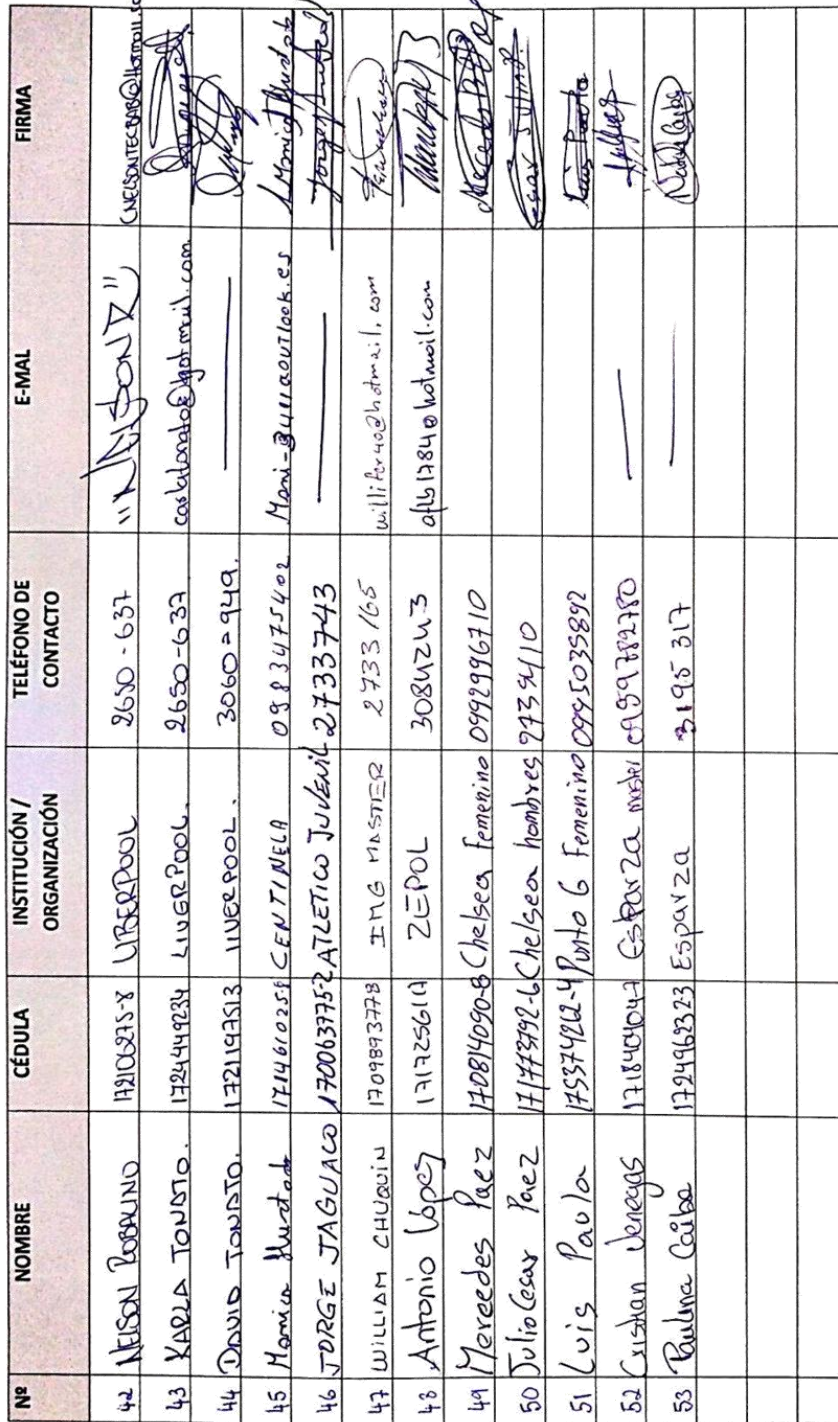 Nº NOMBRE CÉDULA INSTITUCIÓN / ORGANIZACIÓN TELÉFONO DE CONTACTO E-MAL FIRMA
42 NELSON ROBALINO 172106275-8 LIBERPOOL 2650-637 "NELSONR"
43 KARLA TONATO. 1724449234 LIVERPOOL. 2650-637
44 DAVID TONATO. 1721197513 LIVERPOOL. 3060=949.
45 Monica Hurtado 1714610259 CENTINELA 0983475402
46 JORGE JAGUACO 1700637752 ATLETICO JUVENIL 2733743
47 WILLIAM CHUQUIN 1709893778 IMG MASTER 2733165 willifer40@hotmail.com
48 Antonio López 1717256111 ZEPOL 3084243 aflb1784@hotmail.com
49 Mercedes Paez 170814090-8 Chelsea Femenino 0992996710
50 Julio Cesar Paez 171773792-6 Chelsea hombres Cesar Julio P.
51 Luis Paula 175374262-4 Punto G Femenino 0995035892 Luis Paula
52 Cristian Venegas Esparza master 0959782780
53 Paulina Caiba 1724962323 Esparza 3195317